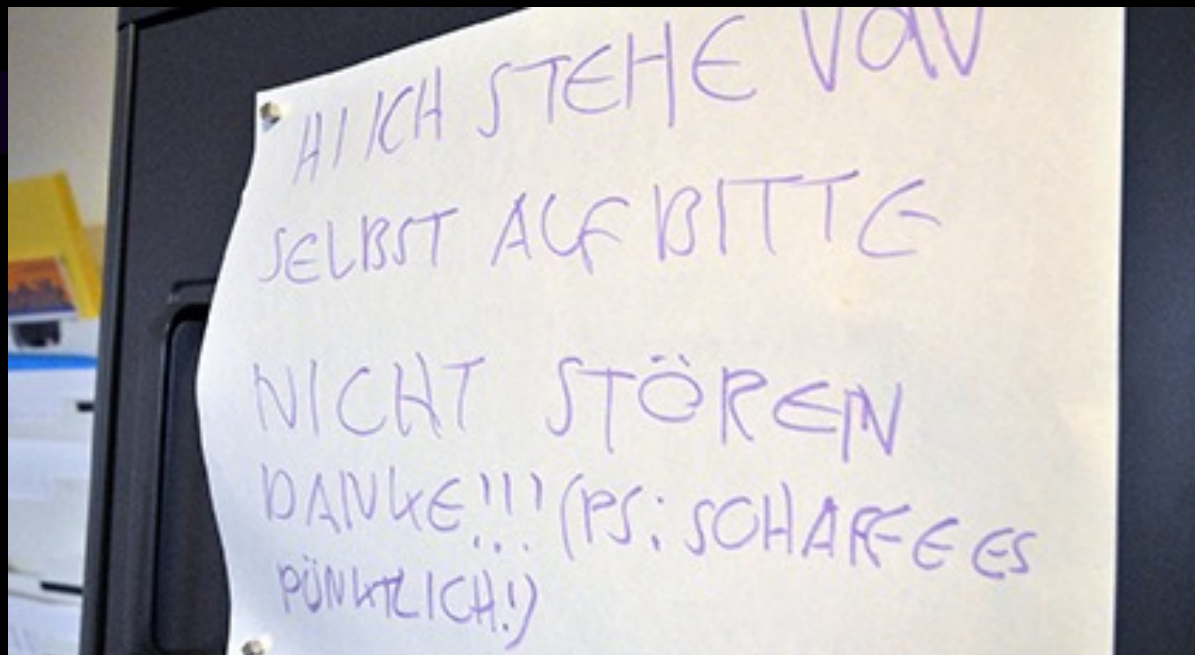 HI ICH STEHE VON
SELBST AUF BITTE
NICHT STÖREN
DANKE!!! (PS: SCHAFFE ES
PÜNKTLICH!)